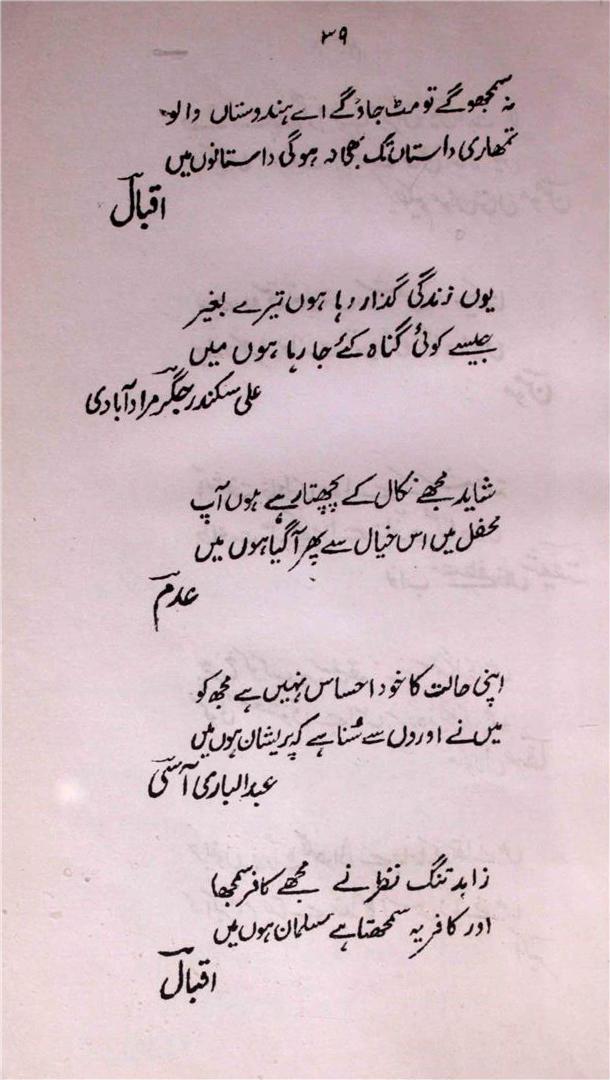 ۳۹
نہ سمجھوگے تو مٹ جاؤگے اے ہندوستاں والو
تمھاری داستاں تک بھی نہ ہوگی داستانوں میں
اقبال
یوں زندگی گذار رہا ہوں تیرے بغیر
جیسے کوئی گناہ کئے جا رہا ہوں میں
علی سکندر جگر مراد آبادی
شاید مجھے نکال کے پچھتا رہے ہوں آپ
محفل میں اس خیال سے پھر آگیا ہوں میں
عدم
اپنی حالت کا خود احساس نہیں ہے مجھ کو
میں نے اوروں سے سُنا ہے کہ پریشان ہوں میں
عبدالباری آسی
زاہد تنگ نظر نے مجھے کافر سمجھا
اور کافر یہ سمجھتا ہے مسلمان ہوں میں
اقبال